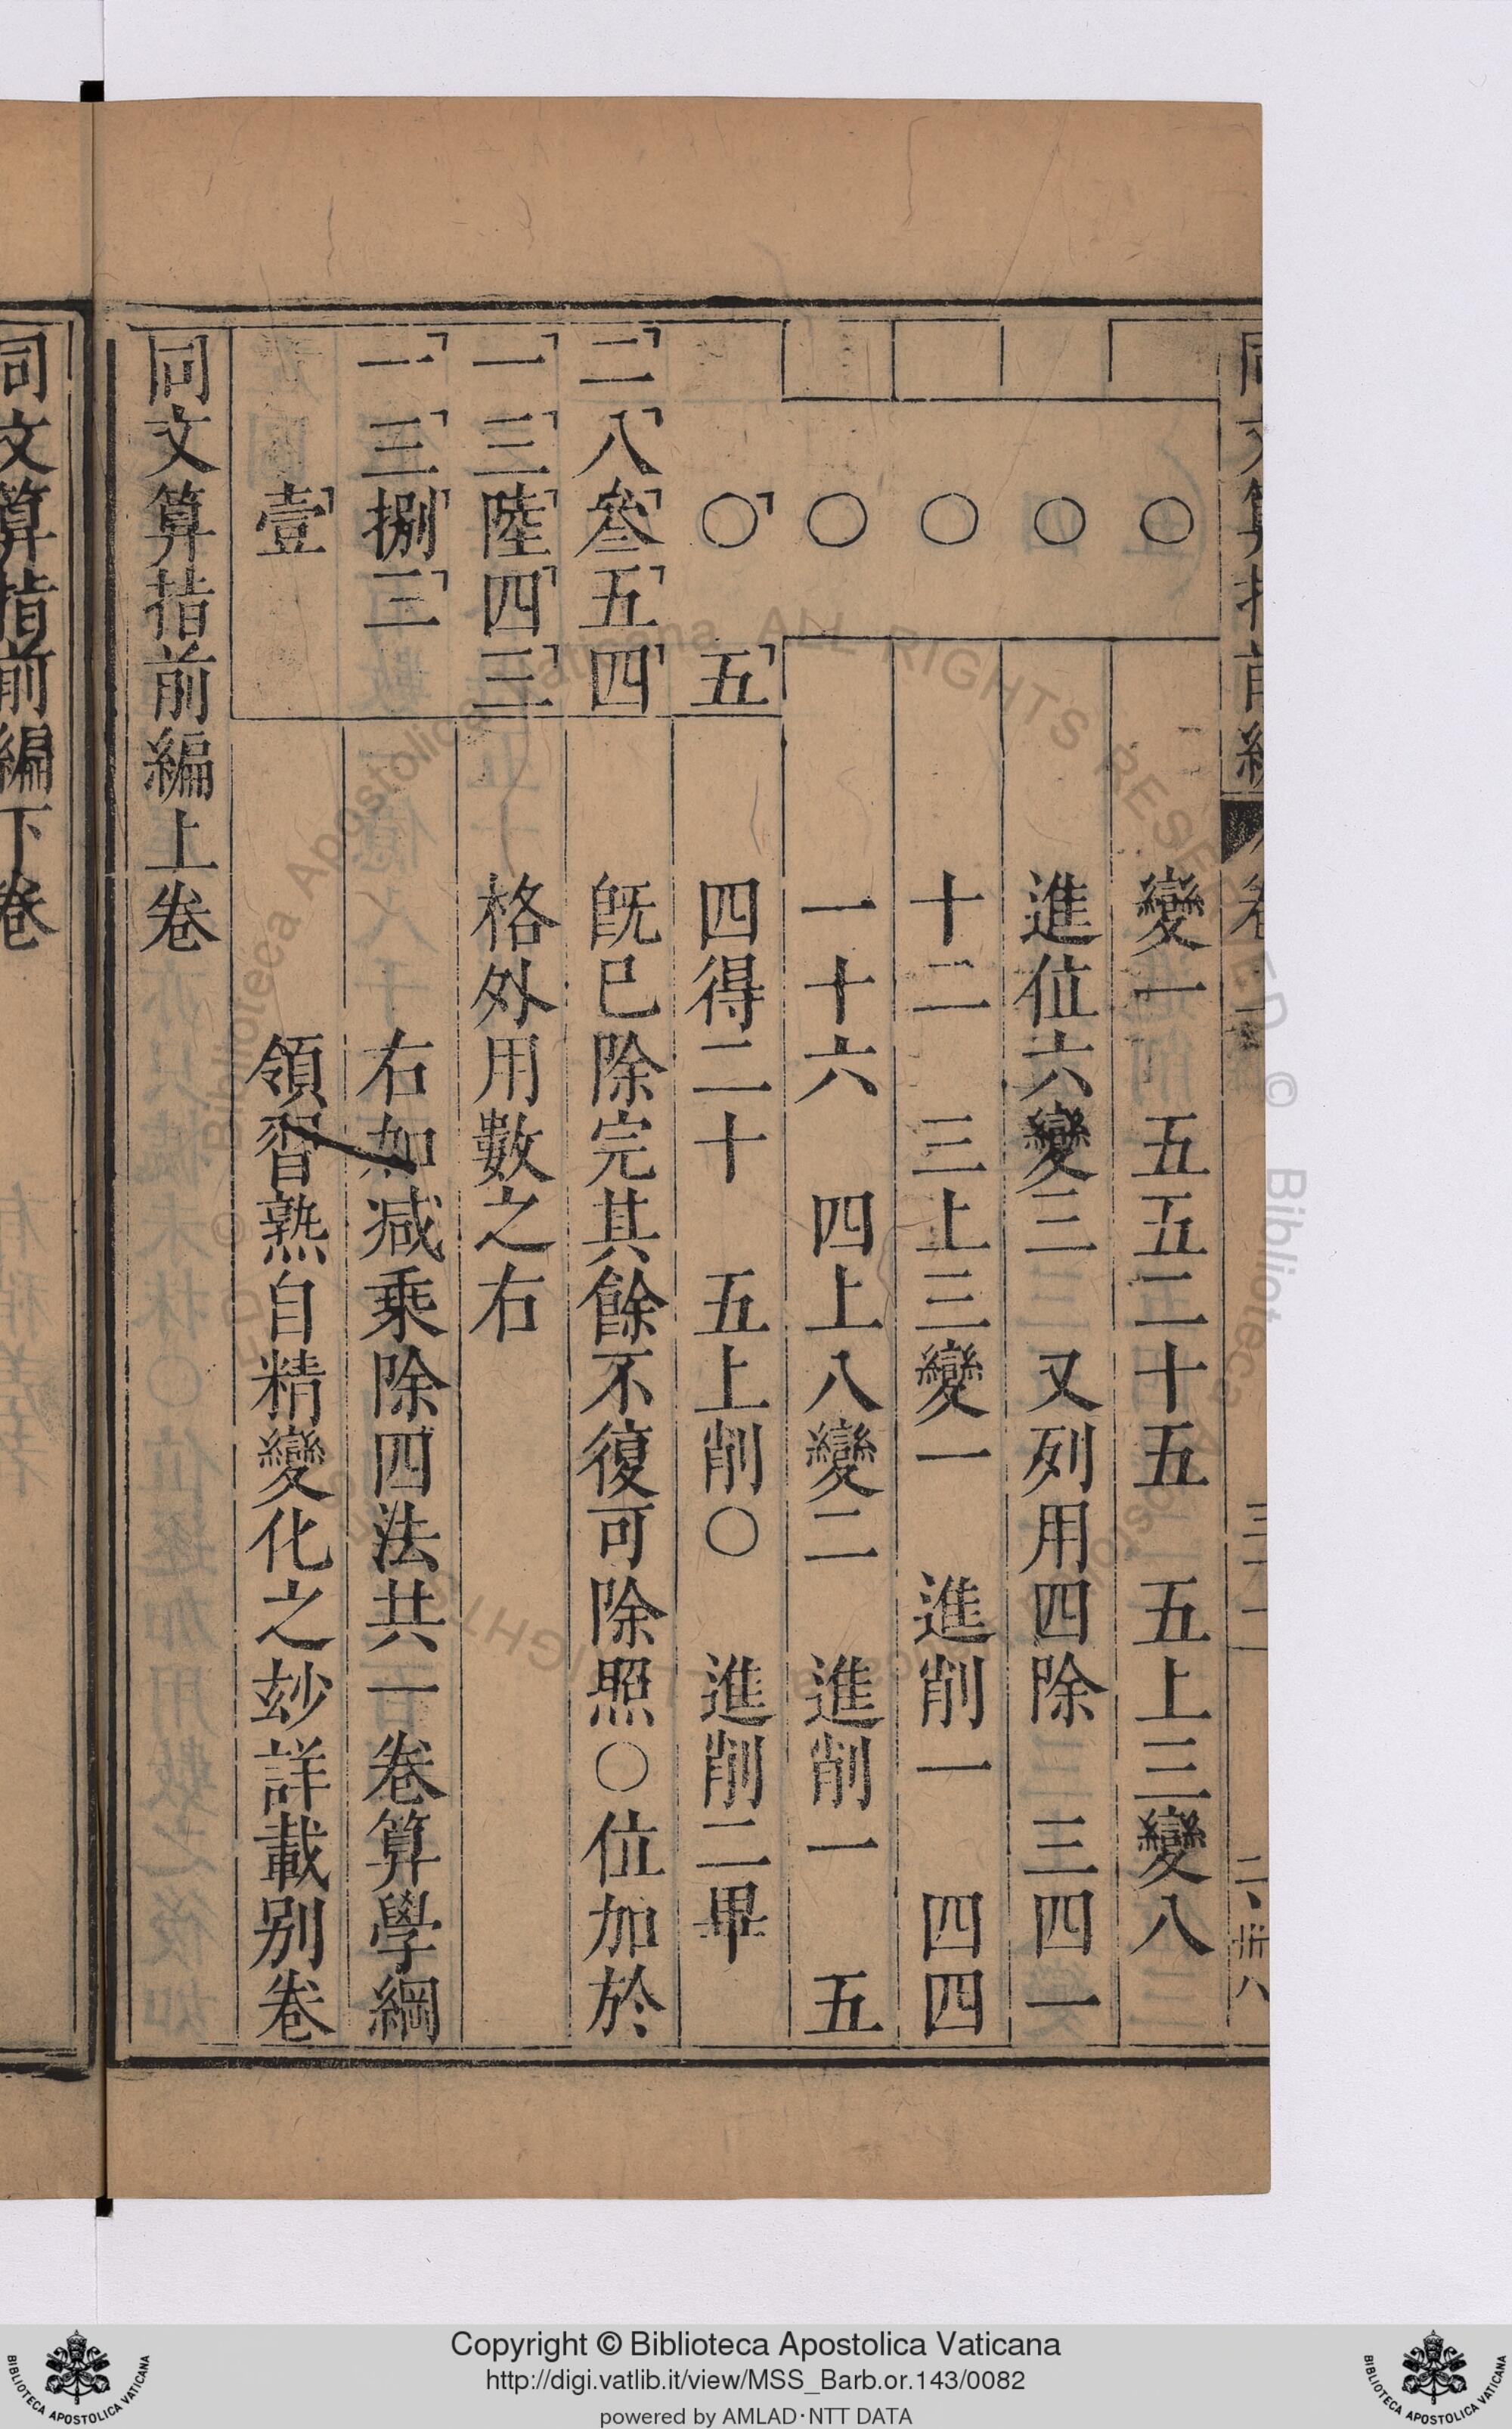 變一 五五二十五 五上三變八
進位六變三 又列用四除 三四一
十二 三上三變一 進削一 四四
一十六 四上八變二 進削一 五
四得二十 五上削〇 進削二畢
旣已除完其餘不復可除照〇位加於
格外用數之右
右加减乘除四法共一卷算學綱
領習熟自精變化之玅詳載别卷
〇
〇
〇
〇
〇 五
二八叄五四
一三陸四三
一三捌三
壹
同文算指前編上卷
同文算指前編下卷
Copyright © Biblioteca Apostolica Vaticana
http://digi.vatlib.it/view/MSS_Barb.or.143/0082
powered by AMLAD·NTT DATA
BIBLIOTECA APOSTOLICA VATICANA
BIBLIOTECA APOSTOLICA VATICANA